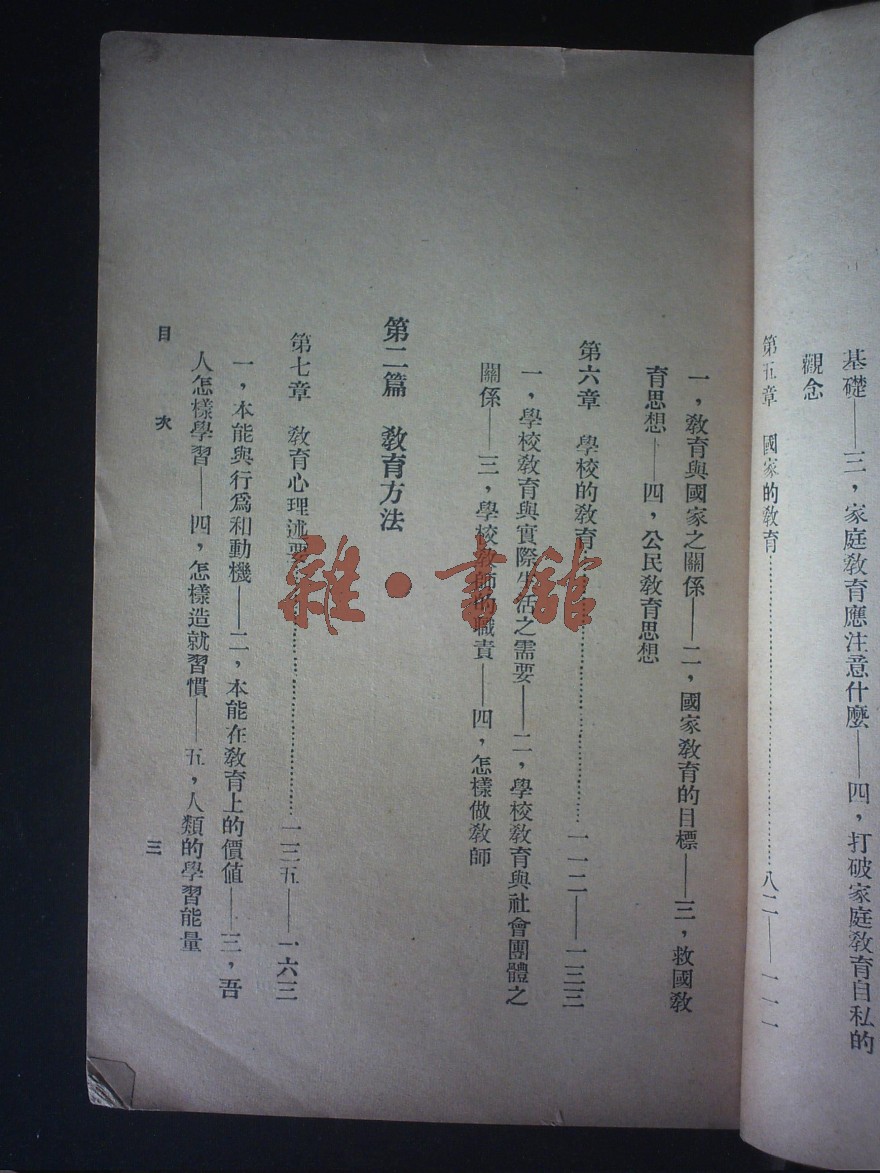 基礎——三，家庭教育應注意什麼——四，打破家庭教育自私的
觀念
第五章　國家的教育……………………八二——一一一
一，教育與國家之關係——二，國家教育的目標——三，救國教
育思想——四，公民教育思想
第六章　學校的教育……………………一一二——一三三
一，學校教育與實際生活之需要——二，學校教育與社會團體之
關係——三，學校教師的職責——四，怎樣做教師
第二篇　教育方法
第七章　教育心理述要……………………一三五——一六三
一，本能與行爲和動機——二，本能在教育上的價値——三，吾
人怎樣學習——四，怎樣造就習慣——五，人類的學習能量
目次　三
雜·書館